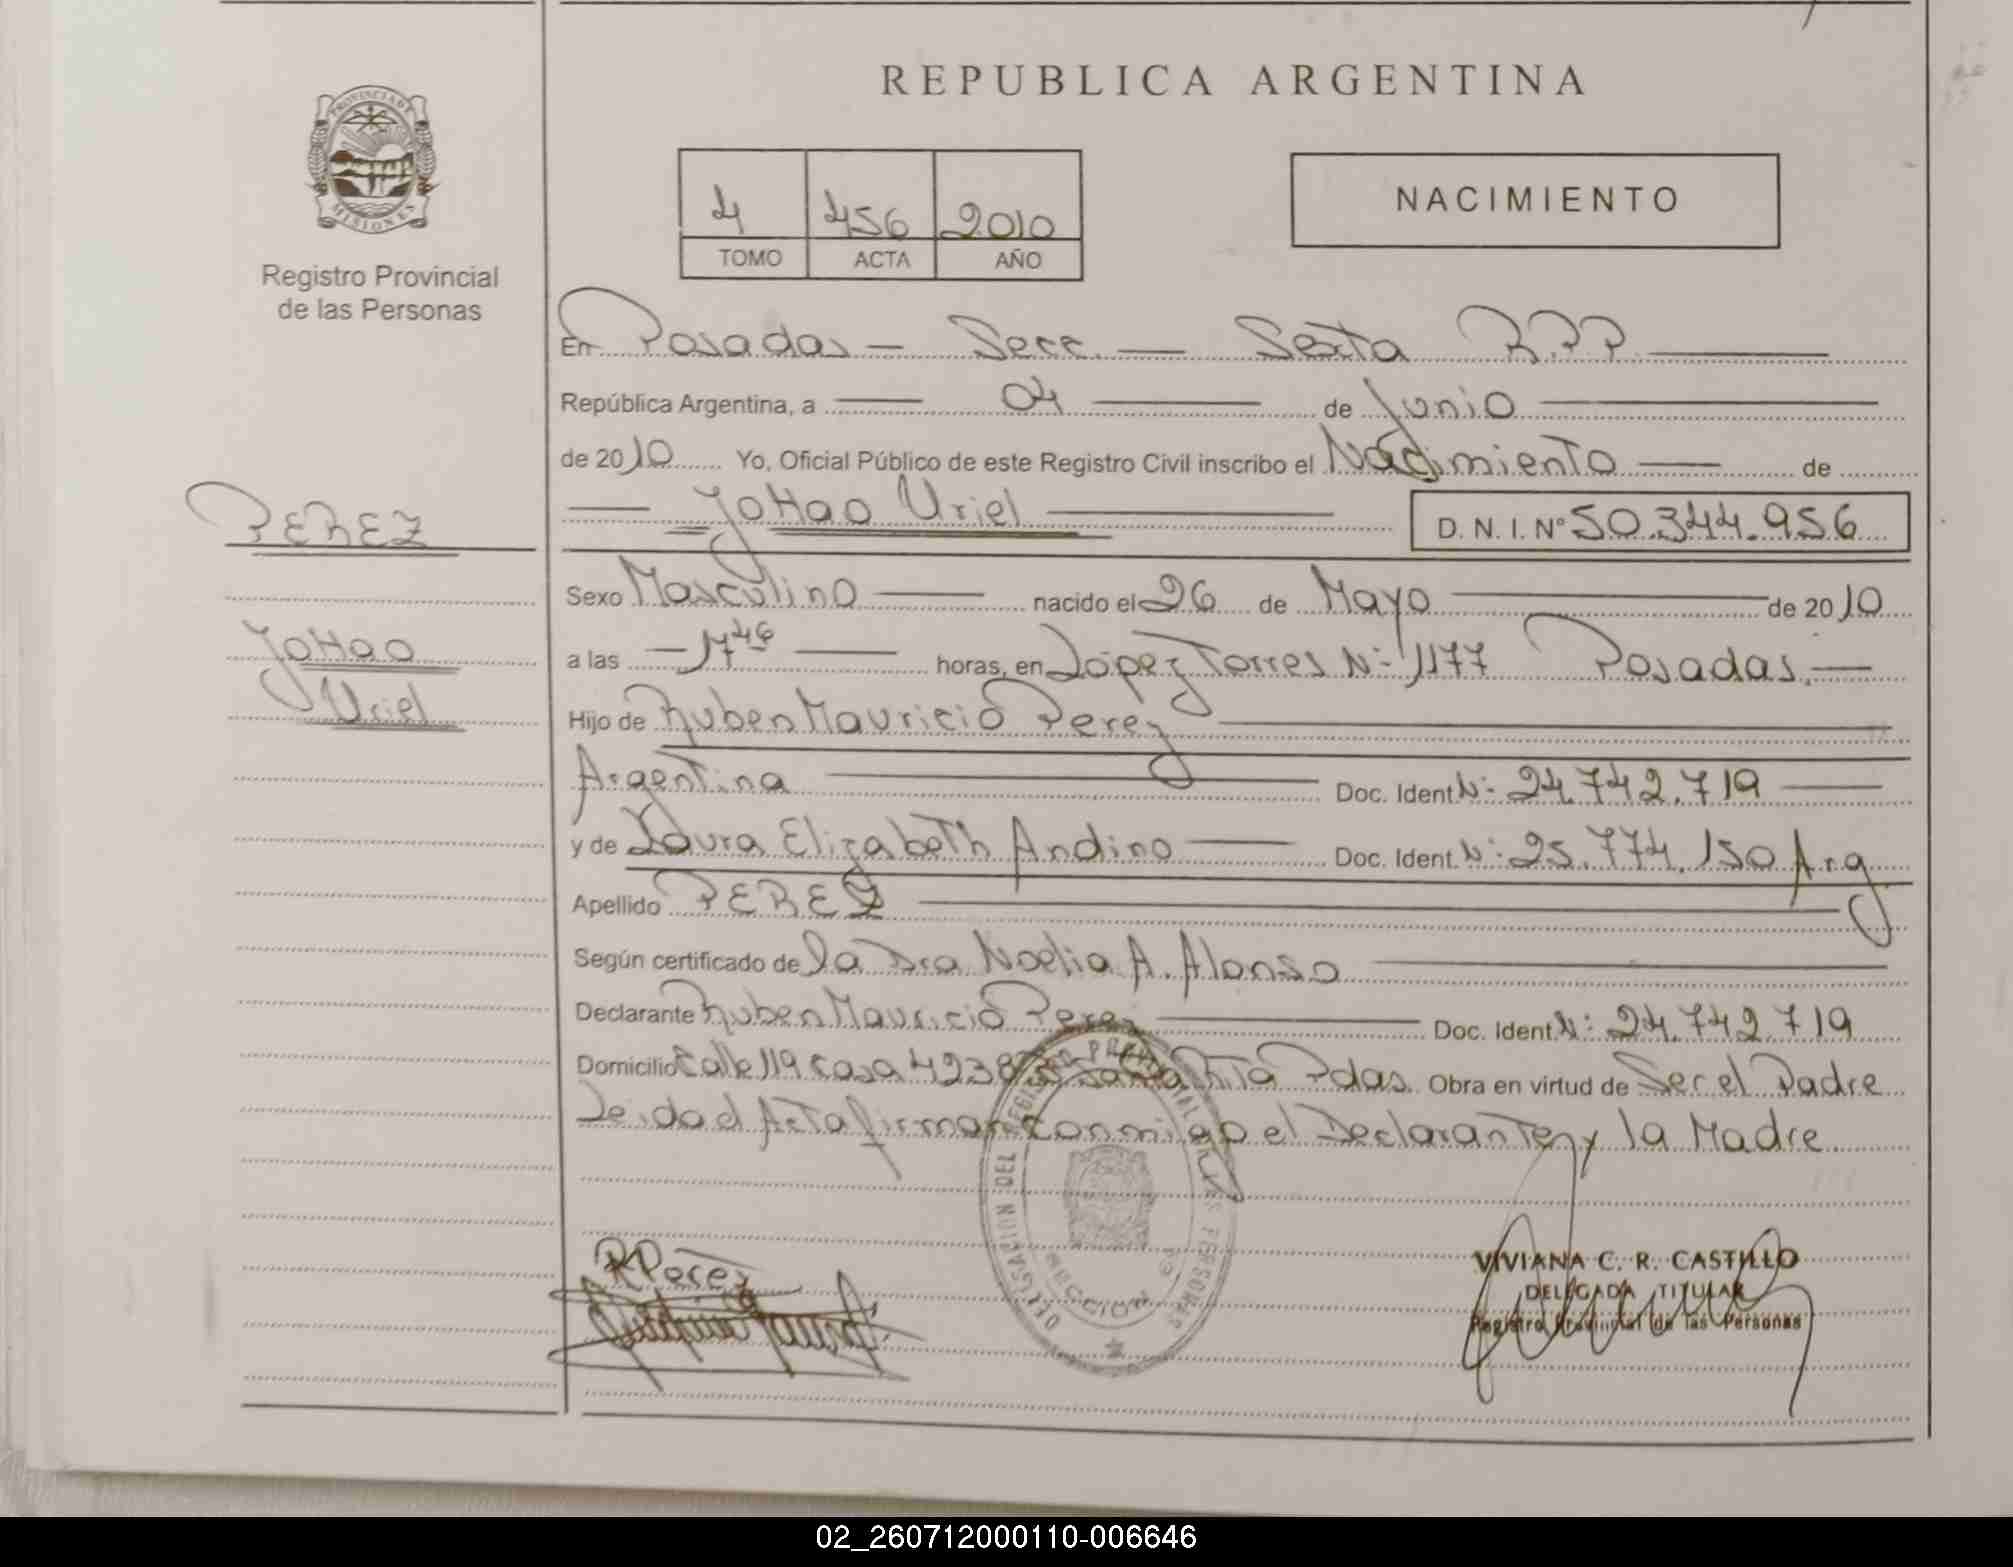 REPUBLICA ARGENTINA
PROVINCIA DE
MISIONES
Registro Provincial
de las Personas
4 456 2010
TOMO ACTA AÑO
NACIMIENTO
En Posadas - Secc. - Sexta R.P.P.
República Argentina, a 04 de Junio
de 2010 Yo, Oficial Público de este Registro Civil inscribo el Nacimiento de
PEREZ
JoHao Uriel
D. N. I. Nº 50.344.956
Sexo Masculino nacido el 26 de Mayo de 2010
JoHao
Uriel
a las 17 46 horas, en López Torres Nº 1177 Posadas.
Hijo de Ruben Mauricio Perez
Argentina Doc. Ident. Nº: 24.742.719
y de Laura Elizabeth Andino Doc. Ident. Nº: 25.774.150 Arg
Apellido PEREZ
Según certificado de la Dra Noelia A. Alonso
Declarante Ruben Mauricio Perez Doc. Ident. Nº: 24.742.719
Domicilio Calle 119 casa 4238 Santa Rita Pdas. Obra en virtud de Ser el Padre
Leida el Acta firman conmigo el Declarante y la Madre
DELEGACION DEL REGISTRO PROVINCIAL DE LAS PERSONAS
SECCION 6ª
RPerez
VIVIANA C. R. CASTILLO
DELEGADA TITULAR
Registro Provincial de las Personas
02_260712000110-006646